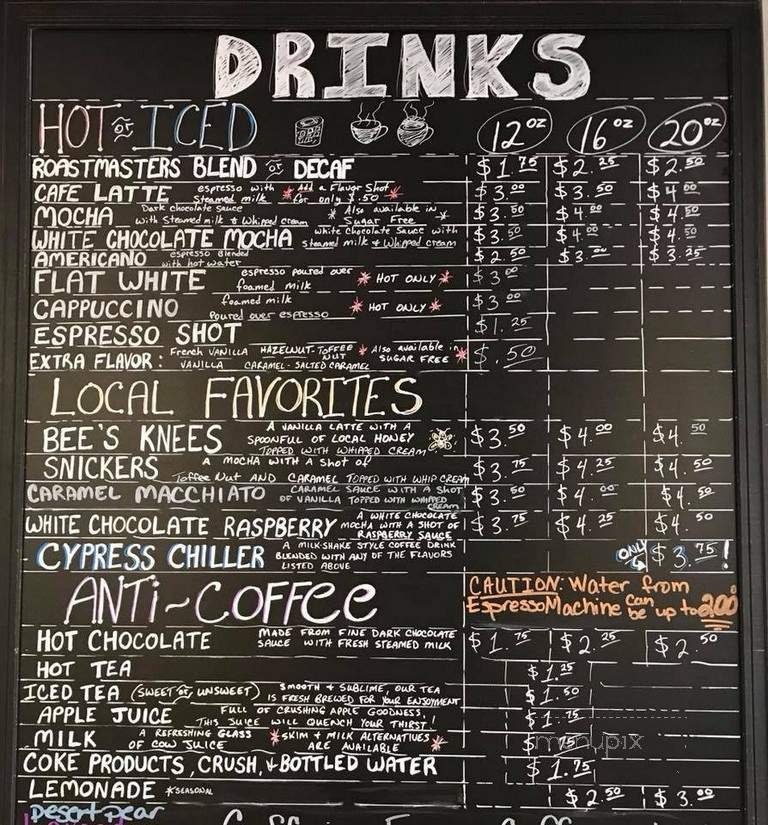 DRINKS
HOT or ICED 12oz 16oz 20oz
ROASTMASTERS BLEND or DECAF $1.75 $2.25 $2.50
CAFE LATTE espresso with Steamed milk * Add a Flavor Shot for only $.50 * $3.00 $3.50 $4.00
MOCHA Dark chocolate Sauce with Steamed milk & Whipped cream * Also available in Sugar Free * $3.50 $4.00 $4.50
WHITE CHOCOLATE MOCHA white Chocolate Sauce with steamed milk & Whipped cream $3.50 $4.00 $4.50
AMERICANO espresso Blended with hot water $2.50 $3.00 $3.25
FLAT WHITE espresso poured over foamed milk * HOT ONLY * $3.00
CAPPUCCINO foamed milk Poured over espresso * HOT ONLY * $3.00
ESPRESSO SHOT $1.25
EXTRA FLAVOR: French VANILLA HAZELNUT-TOFFEE NUT VANILLA CARAMEL-SALTED CARAMEL * Also available in SUGAR FREE * $.50
LOCAL FAVORITES
BEE'S KNEES A VANILLA LATTE WITH A SPOONFUL OF LOCAL HONEY TOPPED WITH WHIPPED CREAM $3.50 $4.00 $4.50
SNICKERS A MOCHA WITH A SHOT OF Toffee Nut AND CARAMEL TOPPED WITH WHIP CREAM $3.75 $4.25 $4.50
CARAMEL MACCHIATO CARAMEL SAUCE WITH A SHOT OF VANILLA TOPPED WITH WHIPPED CREAM $3.50 $4.00 $4.50
WHITE CHOCOLATE RASPBERRY A WHITE CHOCOLATE MOCHA WITH A SHOT OF RASPBERRY SAUCE $3.75 $4.25 $4.50
CYPRESS CHILLER A MILK-SHAKE STYLE COFFEE DRINK BLENDED WITH ANY OF THE FLAVORS LISTED ABOVE ONLY $3.75!
ANTi~COFFEE CAUTION: Water from Espresso Machine can be up to 200°
HOT CHOCOLATE MADE FROM FINE DARK CHOCOLATE SAUCE WITH FRESH STEAMED MILK $1.75 $2.25 $2.50
HOT TEA $1.25
ICED TEA (SWEET or UNSWEET) SMOOTH & SUBLIME, OUR TEA IS FRESH BREWED FOR YOUR ENJOYMENT $1.50
APPLE JUICE FULL OF CRUSHING APPLE GOODNESS, THIS JUICE WILL QUENCH YOUR THIRST! $1.75
MILK A REFRESHING GLASS OF COW JUICE * SKIM & MILK ALTERNATIVES ARE AVAILABLE * $.75
menupix
COKE PRODUCTS, CRUSH, & BOTTLED WATER $1.75
LEMONADE *SEASONAL $2.50 $3.00
Desert pear